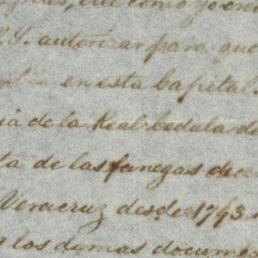 que como yo cre
S. autorizar para que
en esta Capital.
de la Real Cedula de
ta de las fanegas de ca
Veracruz desde 1793
los demas docume